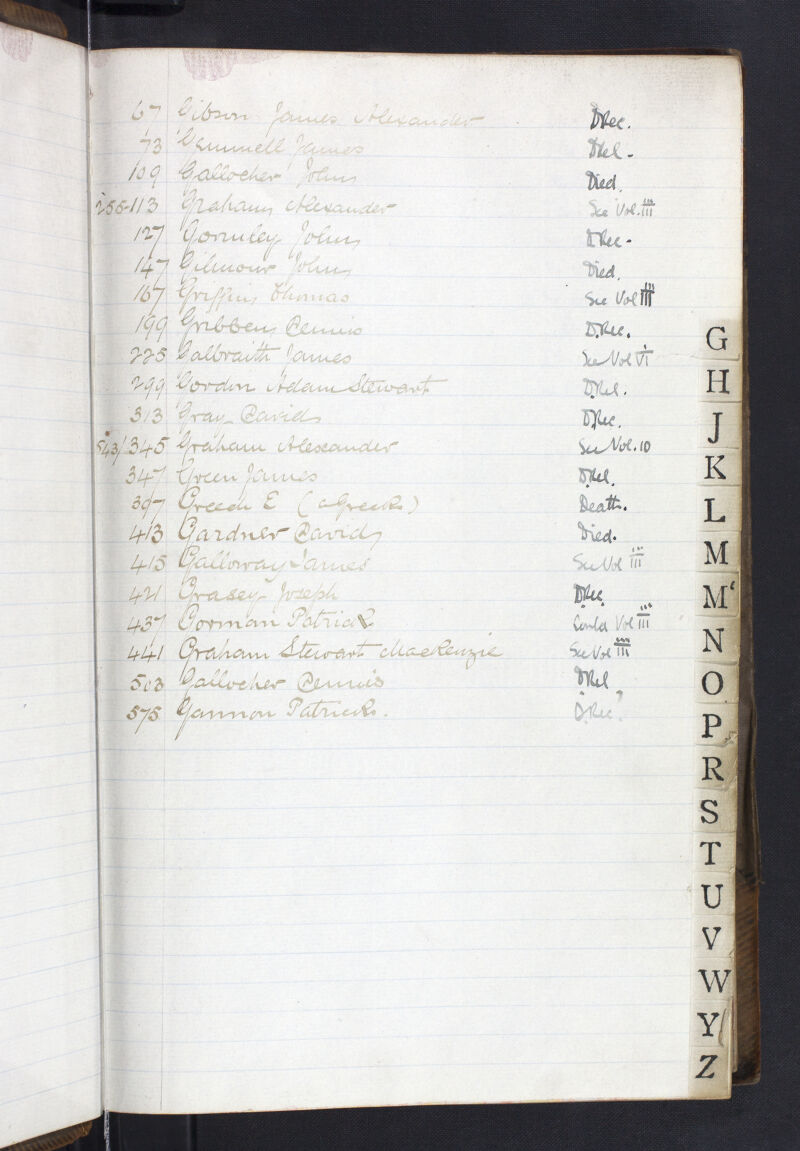 67 Gibson James Alexander D.Rec.
73 Gemmell James D.Rel -
109 Gallocher John Died.
255-113 Graham Alexander See Vol. III
127 Gormley John D.Rec -
147 Gilmour John Died.
167 Griffin Thomas See Vol III
199 Gribben Dennis D.Rec.
225 Galbraith James See Vol VI
299 Gordon Adam Stewart D.Rel.
313 Gray David D.Rec.
543/345 Graham Alexander See Vol. 10
347 Green James D.Rel.
397 Greech E (a Greek) Death.
413 Gardner David Died.
415 Galloway James See Vol III
421 Grasey Joseph D.Rec.
437 Gorman Patrick Contd Vol III
441 Graham Stewart MacKenzie See Vol III
503 Gallocher Dennis D.Rel
575 Gannon Patrick. D.Rec?
G
H
J
K
L
M
Mc
N
O
P
R
S
T
U
V
W
Y
Z